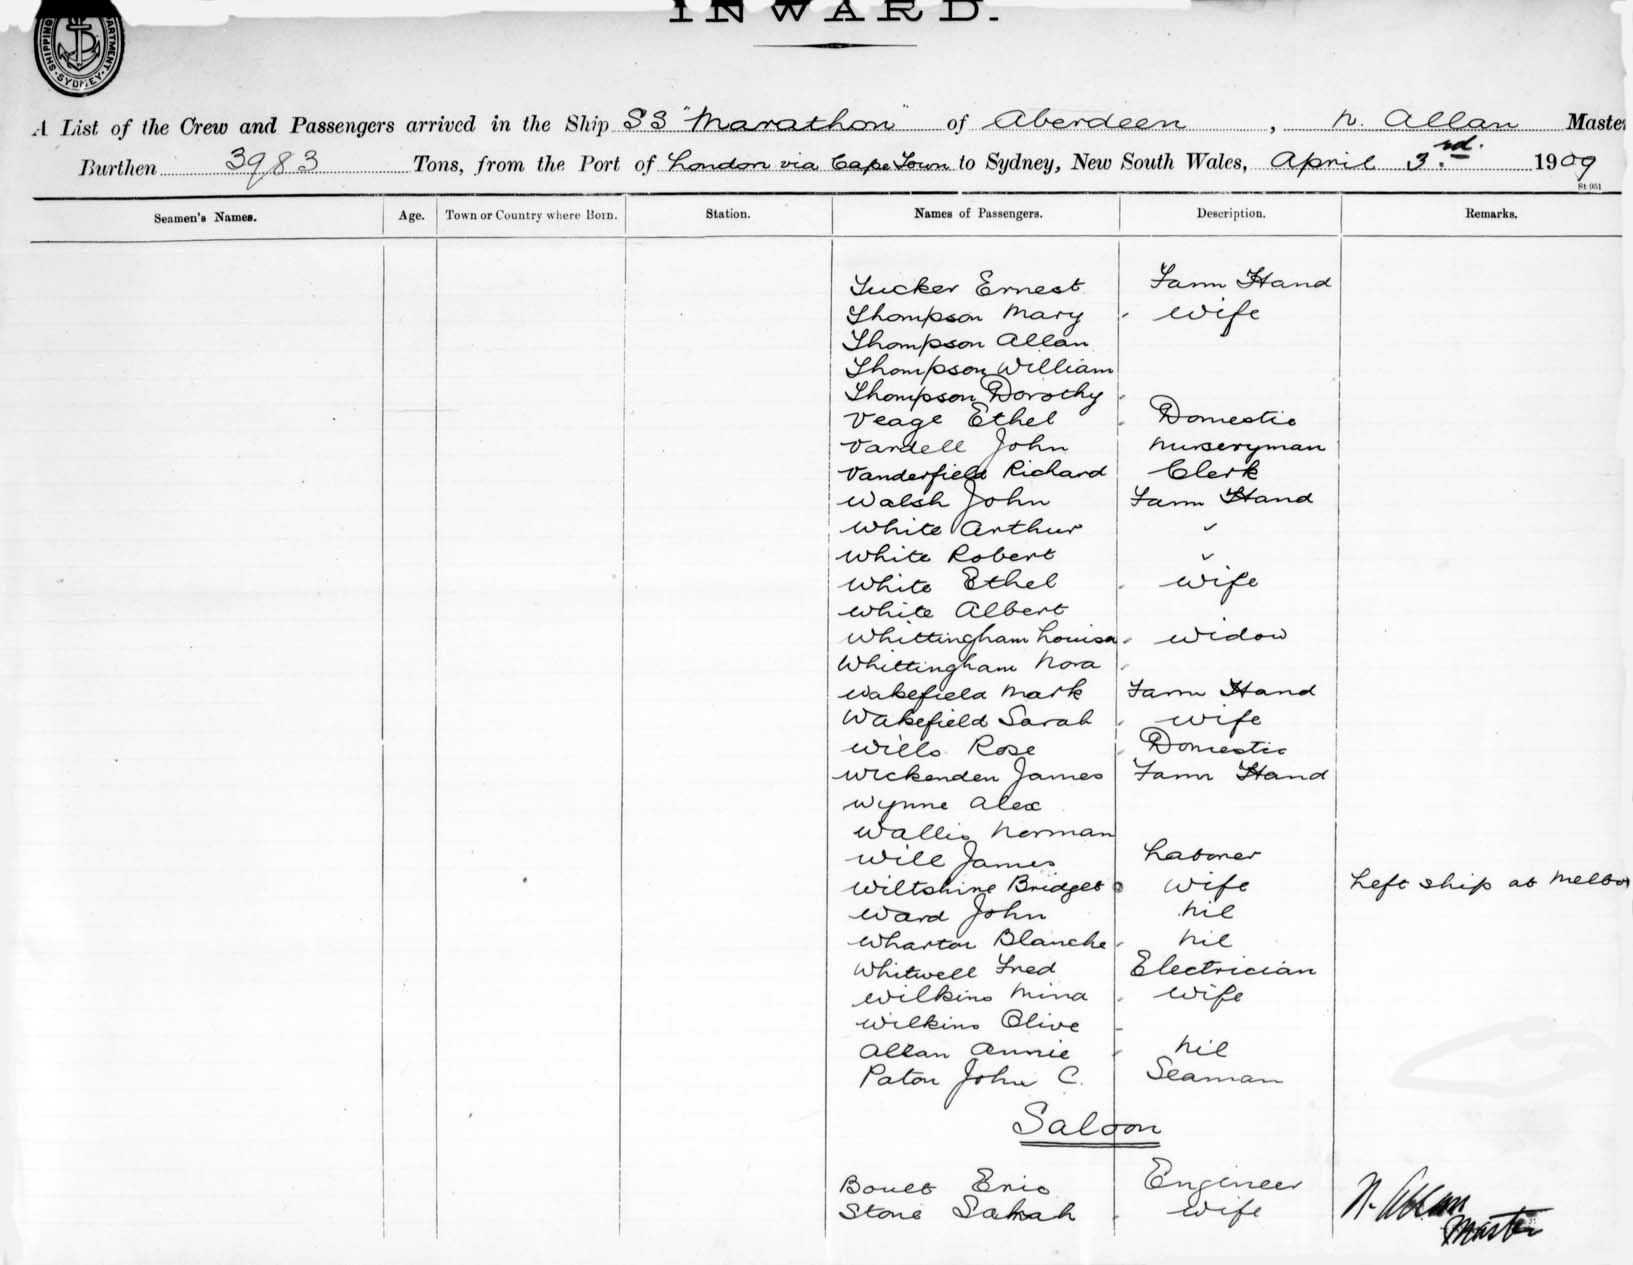 INWARD.
SHIPPING DEPARTMENT SYDNEY
A List of the Crew and Passengers arrived in the Ship SS "Marathon" of Aberdeen, N. Allan Master
Burthen 3983 Tons, from the Port of London via Cape Town to Sydney, New South Wales, April 3rd. 1909
St 951
Seamen's Names. Age. Town or Country where Born. Station. Names of Passengers. Description. Remarks.
Tucker Ernest Farm Hand
Thompson Mary wife
Thompson Allan
Thompson William
Thompson Dorothy
Veage Ethel Domestic
Vardell John Nurseryman
Vanderfield Richard Clerk
Walsh John Farm Hand
White Arthur "
White Robert "
White Ethel wife
White Albert
Whittingham Louisa widow
Whittingham Nora
Wakefield Mark Farm Hand
Wakefield Sarah wife
Wills Rose Domestic
Wickenden James Farm Hand
Wynne Alex
Wallis Norman
Will James Laborer
Wiltshire Bridget wife Left ship at Melbo
Ward John Nil
Wharton Blanche Nil
Whitwell Fred Electrician
Wilkins Mina wife
Wilkins Olive
Allan Annie Nil
Paton John C. Seaman
Saloon
Eric Engineer
Stone Sarah wife
N. Allan
Master